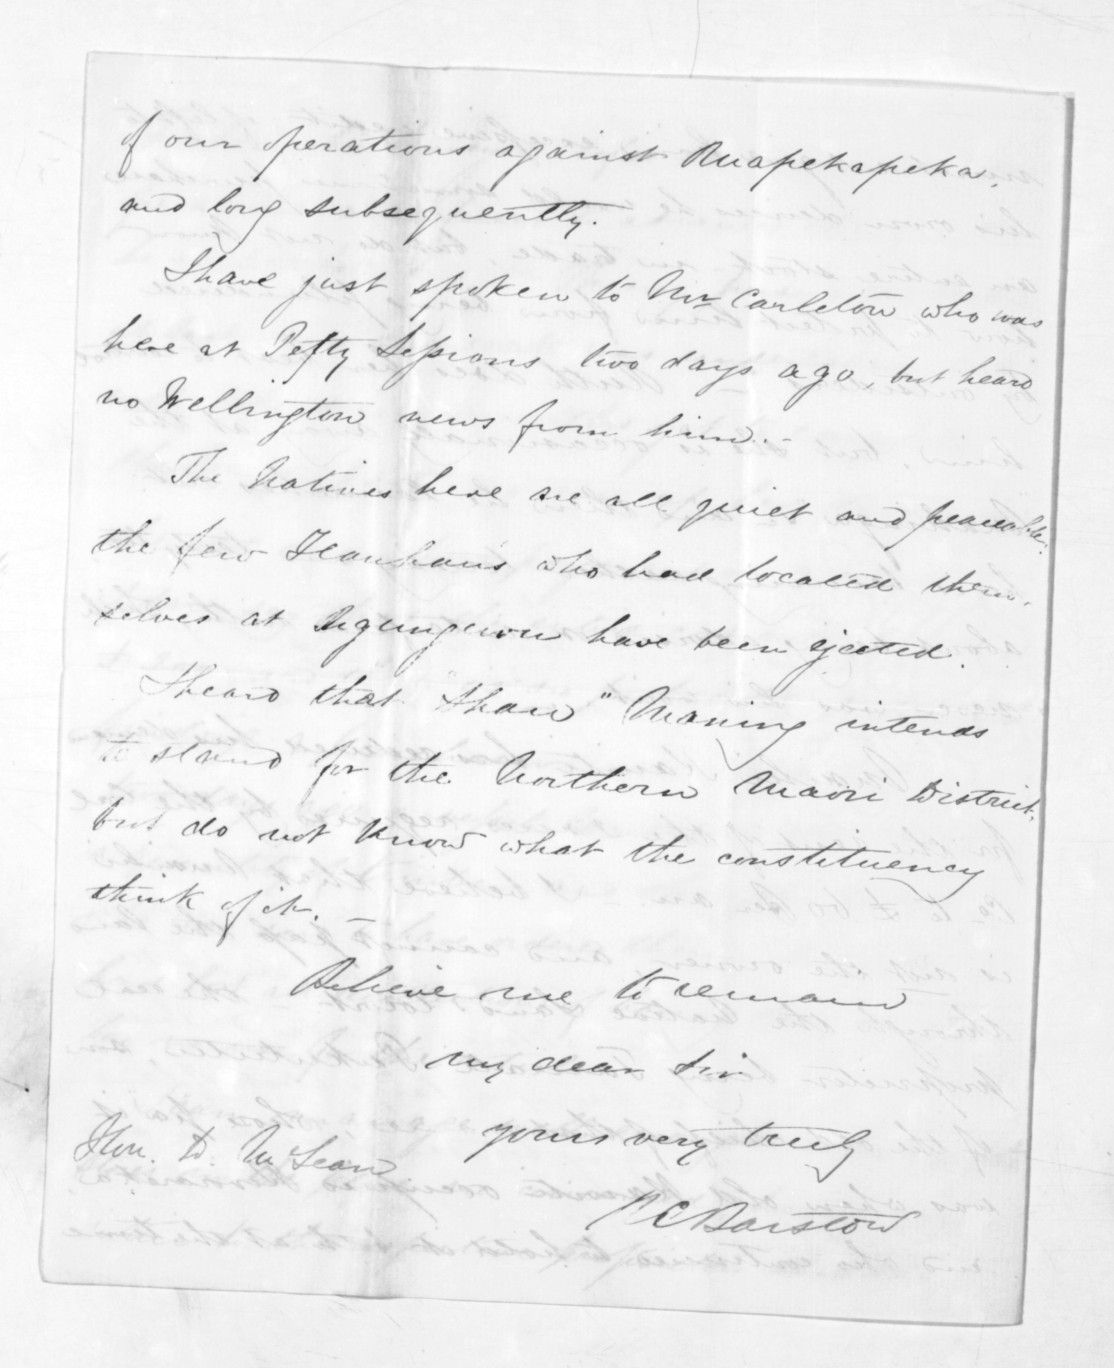 of our operations against Ruapekapeka,
and long subsequently.
I have just spoken to Mr Carleton who was
here at Petty Sessions two days ago, but heard
no Wellington news from him. -
The Natives here are all quiet and peaceable.
the few Hauhaus who had located them-
selves at Ngunguru have been ejected.
I heard that "Maning intends
to stand for the Northern Maori District,
but do not know what the constituency
think of it. -
Believe me to remain
my dear Sir
yours very truly
R C Barstow
Hon. D. McLean